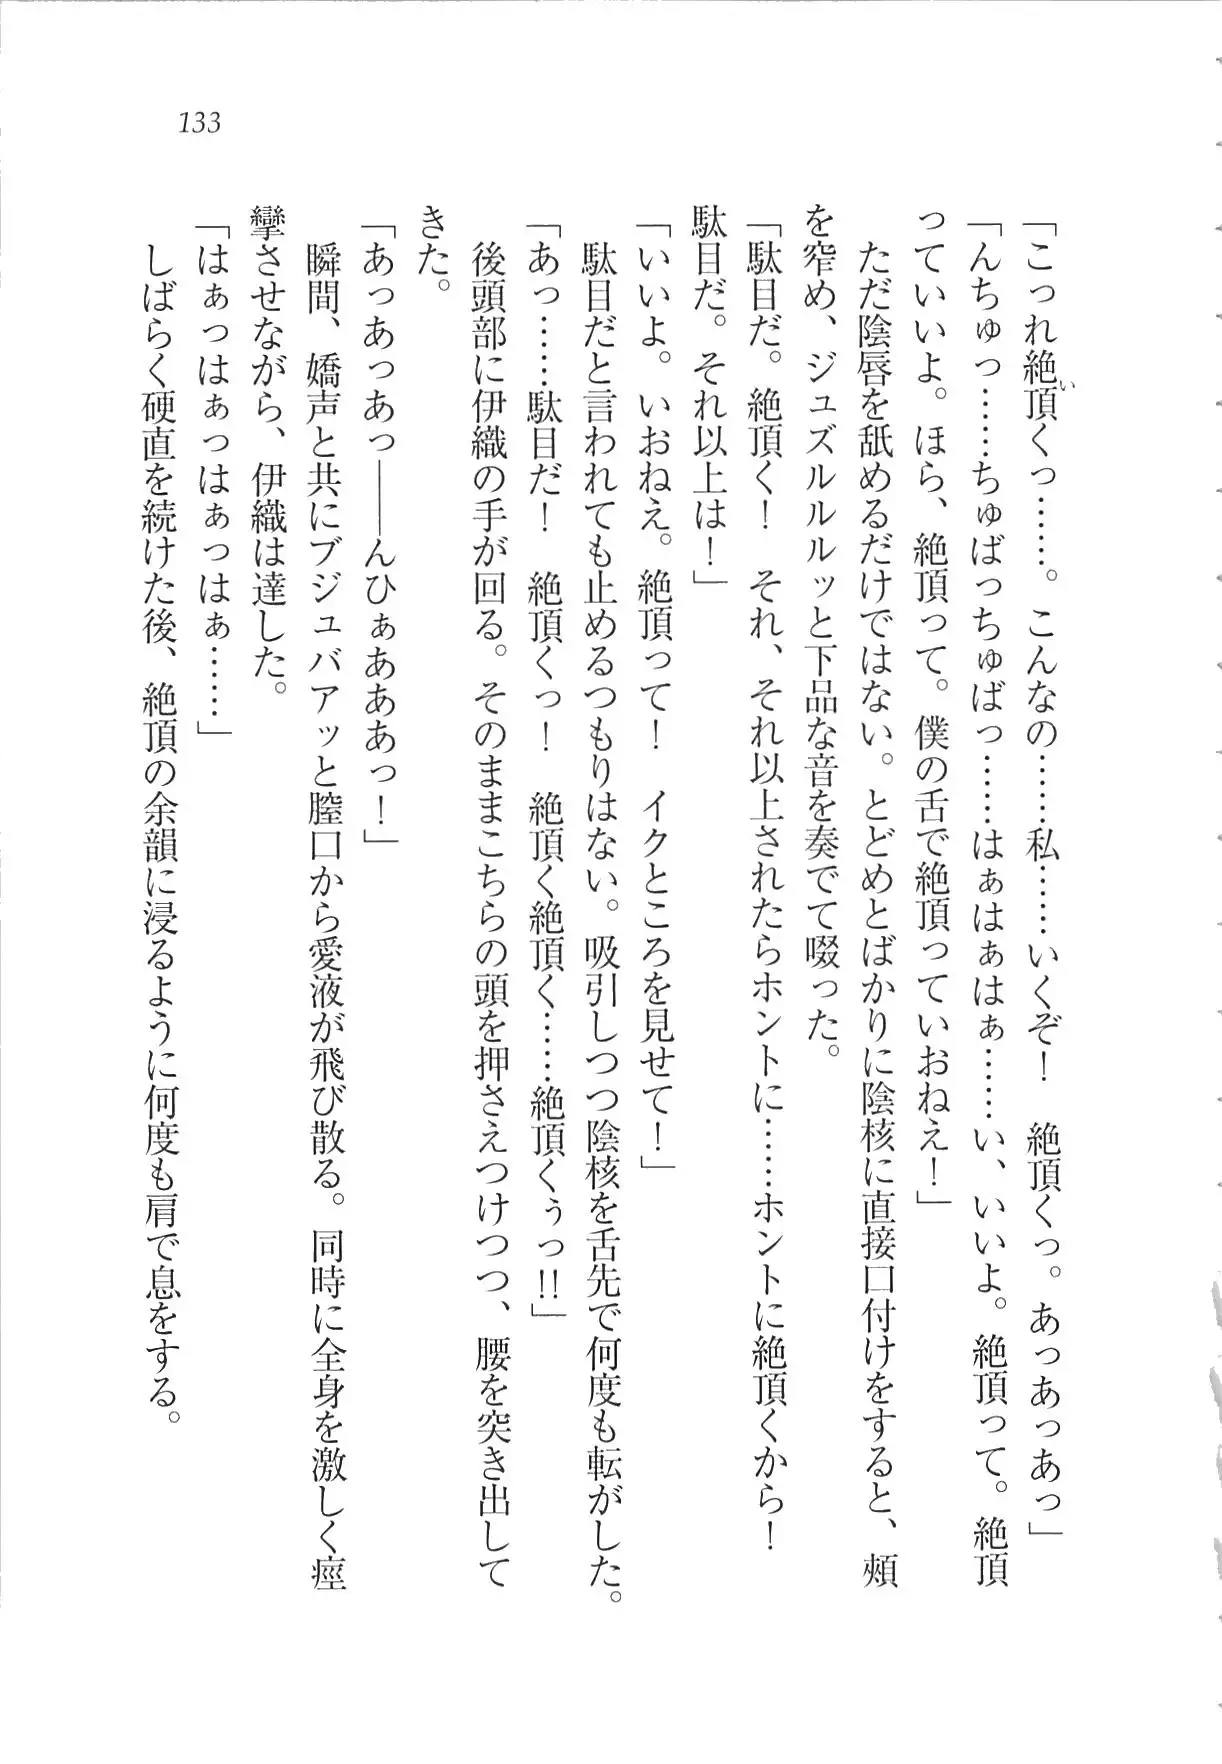 133
「こっれ絶頂くっ……。こんなの……私……いくぞ！　絶頂くっ。あっあっあっ」
い
「んちゅっ……ちゅばっちゅばっ……はぁはぁはぁ……い、いいよ。絶頂って。絶頂
っていいよ。ほら、絶頂って。僕の舌で絶頂っていおねえ！」
　ただ陰唇を舐めるだけではない。とどめとばかりに陰核に直接口付けをすると、頰
を窄め、ジュズルルルッと下品な音を奏でて啜った。
「駄目だ。絶頂く！　それ、それ以上されたらホントに……ホントに絶頂くから！
駄目だ。それ以上は！」
「いいよ。いおねえ。絶頂って！　イクところを見せて！」
　駄目だと言われても止めるつもりはない。吸引しつつ陰核を舌先で何度も転がした。
「あっ……駄目だ！　絶頂くっ！　絶頂く絶頂く……絶頂くぅっ!!」
　後頭部に伊織の手が回る。そのままこちらの頭を押さえつけつつ、腰を突き出して
きた。
「あっあっあっ――んひぁあああっ！」
　瞬間、嬌声と共にブジュバアッと膣口から愛液が飛び散る。同時に全身を激しく痙
攣させながら、伊織は達した。
「はぁっはぁっはぁっはぁ……」
　しばらく硬直を続けた後、絶頂の余韻に浸るように何度も肩で息をする。